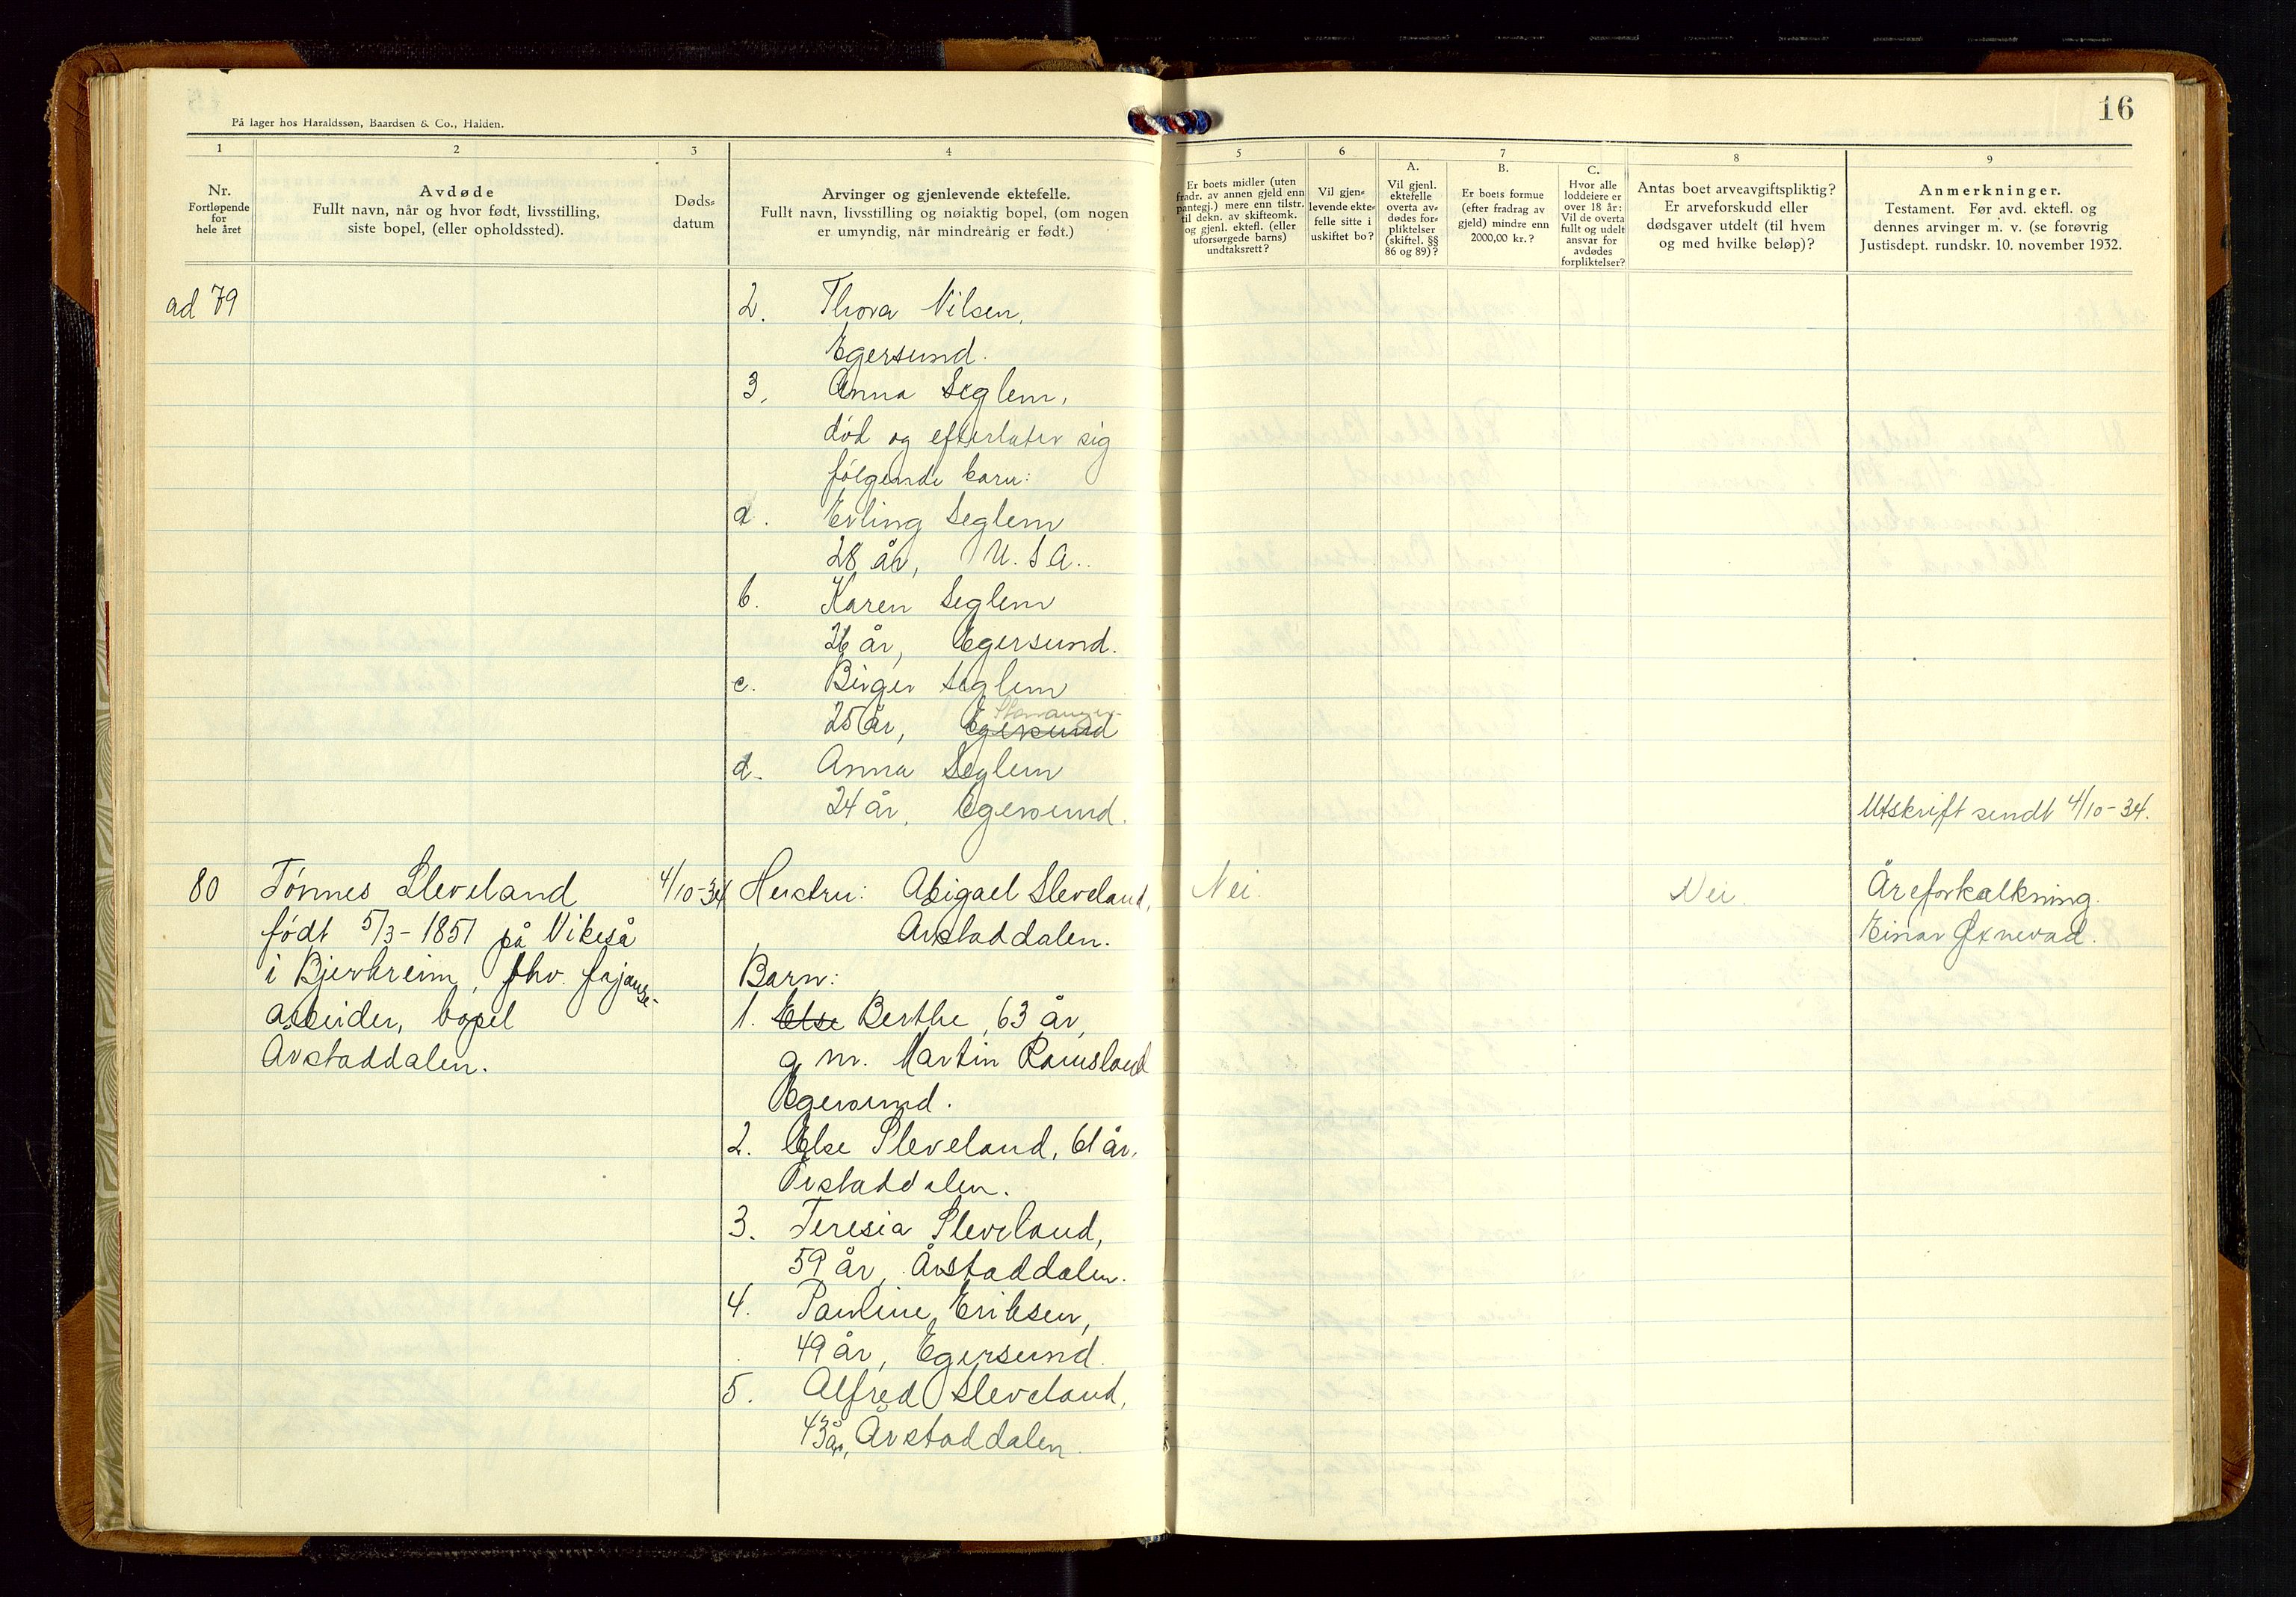 16
På lager hos Haraldssøn, Baardsen & Co., Halden.
1
2
3
4
5
6
7
8
9
Nr.
Fortløpende
for
hele året
Avdøde
Fullt navn, når og hvor født, livsstilling,
siste bopel, (eller opholdssted).
Døds-
datum
Arvinger og gjenlevende ektefelle.
Fullt navn, livsstilling og nøiaktig bopel, (om nogen
er umyndig, når mindreårig er født.)
Er boets midler (uten
fradr. av annen gjeld enn
pantegj.) mere enn tilstr.
til dekn. av skifteomk.
og gjenl. ektefl. (eller
uforsørgede barns)
undtaksrett?
Vil gjen-
levende ekte-
felle sitte i
uskiftet bo?
A.
Vil gjenl.
ektefelle
overta av-
dødes for-
pliktelser
(skiftel. §§
86 og 89)?
B.
Er boets formue
(efter fradrag av
gjeld) mindre enn
2000,00 kr.?
C.
Hvor alle
loddeiere er
over 18 år:
Vil de overta
fullt og udelt
ansvar for
avdødes
forpliktelser?
Antas boet arveavgiftspliktig?
Er arveforskudd eller
dødsgaver utdelt (til hvem
og med hvilke beløp)?
Anmerkninger.
Testament. Før avd. ektefl. og
dennes arvinger m. v. (se forøvrig
Justisdept. rundskr. 10. november 1932.
ad 79
2. Thora Nilsen,
Egersund.
3. Anna Seglem,
död og efterlater sig
følgende barn:
a. Erling Seglem
28 år, U.S.A..
b. Karen Seglem
26 år, Egersund.
c. Birger Seglem
Stavanger
25 år, Egersund
d. Anna Seglem
24 år, Egersund.
Utskrift sendt 4/10-34.
80
Tónnes Sleveland
födt 5/3-1851 på Vikeså
i Bjerkreim, fhv. fajanse-
arbeider, bopel
Årstaddalen.
4/10-34
Hustru: Abigael Sleveland,
Årstaddalen.
Barn:
1. Else Berthe, 63 år,
g. m. Martin Ramsland
Egersund.
2. Else Sleveland, 61 år,
Årstaddalen.
3. Teresia Sleveland,
59 år, Årstaddalen.
4. Pauline Eriksen,
49 år, Egersund.
5. Alfred Sleveland,
43 år, Årstaddalen.
Nei.
Nei.
Åreforkalkning.
Einar Øxnevad.